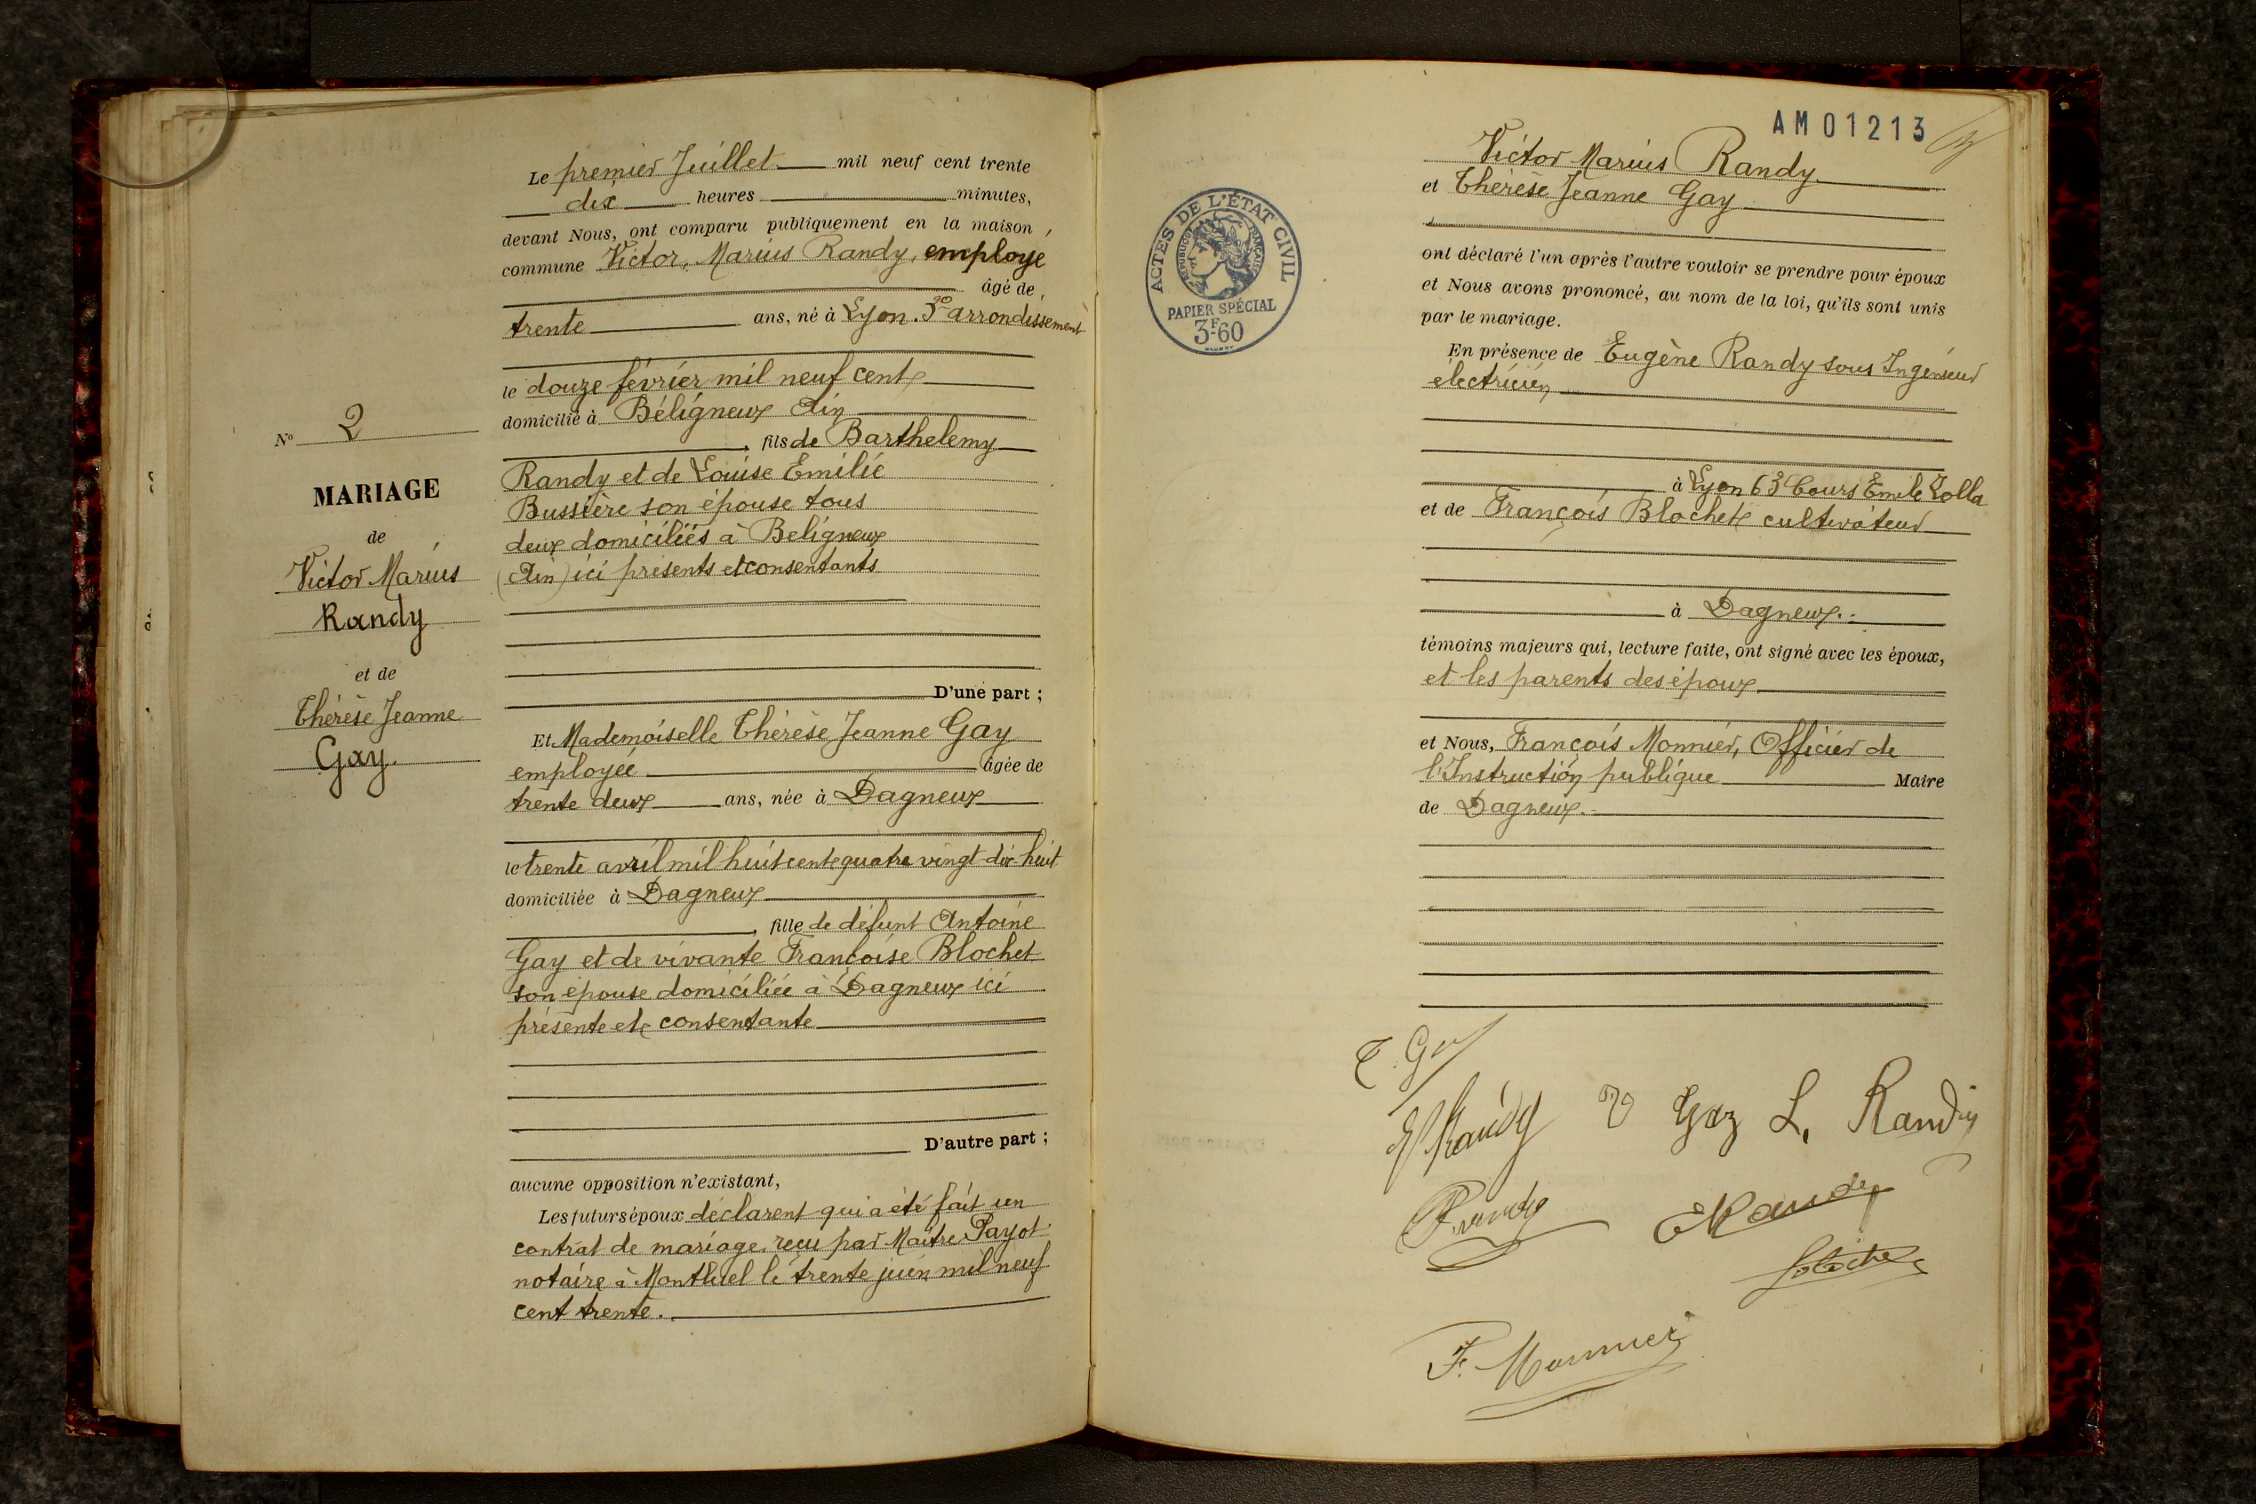 Le premier Juillet mil neuf cent trente
dix heures minutes,
devant Nous, ont comparu publiquement en la maison
commune Victor, Marius Randy, employé
âgé de
trente ans, né à Lyon. 3e arrondissement
le douze février mil neuf cent
domicilié à Béligneux Ain
, fils de Barthelemy
Randy et de Louise Emilie
Bussière son épouse tous
deux domiciliés à Beligneux
(Ain) ici présents et consentants
D'une part ;
Et Mademoiselle Thérèse Jeanne Gay
employée âgée de
trente deux ans, née à Dagneux
le trente avril mil huit cent quatre vingt-dix huit
domiciliée à Dagneux
, fille de défunt Antoine
Gay et de vivante Françoise Blochet
son épouse domiciliée à Dagneux ici
présente et consentante
D'autre part ;
aucune opposition n'existant,
Les futurs époux déclarent qui a été fait un
contrat de mariage, reçu par Maître Payot
notaire à Montluel le trente juin mil neuf
cent trente.
No 2
MARIAGE
de
Victor Marius
Randy
et de
Thérèse Jeanne
Gay.
AM01213
Victor Marius Randy
et Thérèse Jeanne Gay
ont déclaré l'un après l'autre vouloir se prendre pour époux
et Nous avons prononcé, au nom de la loi, qu'ils sont unis
par le mariage.
En présence de Eugène Randy sous Ingénieur
électricien
à Lyon 63 Cours Emile Zolla
et de François Blochet cultivateur
à Dagneux.
témoins majeurs qui, lecture faite, ont signé avec les époux,
et les parents des époux
et Nous, François Monnier, Officier de
l'Instruction publique Maire
de Dagneux.
ACTES DE L'ÉTAT CIVIL
RÉPUBLIQUE FRANÇAISE
PAPIER SPÉCIAL
3F60
T. Gay
Randy
V Gay L. Randy
Randy
E Randy
Blochet
F. Monnier